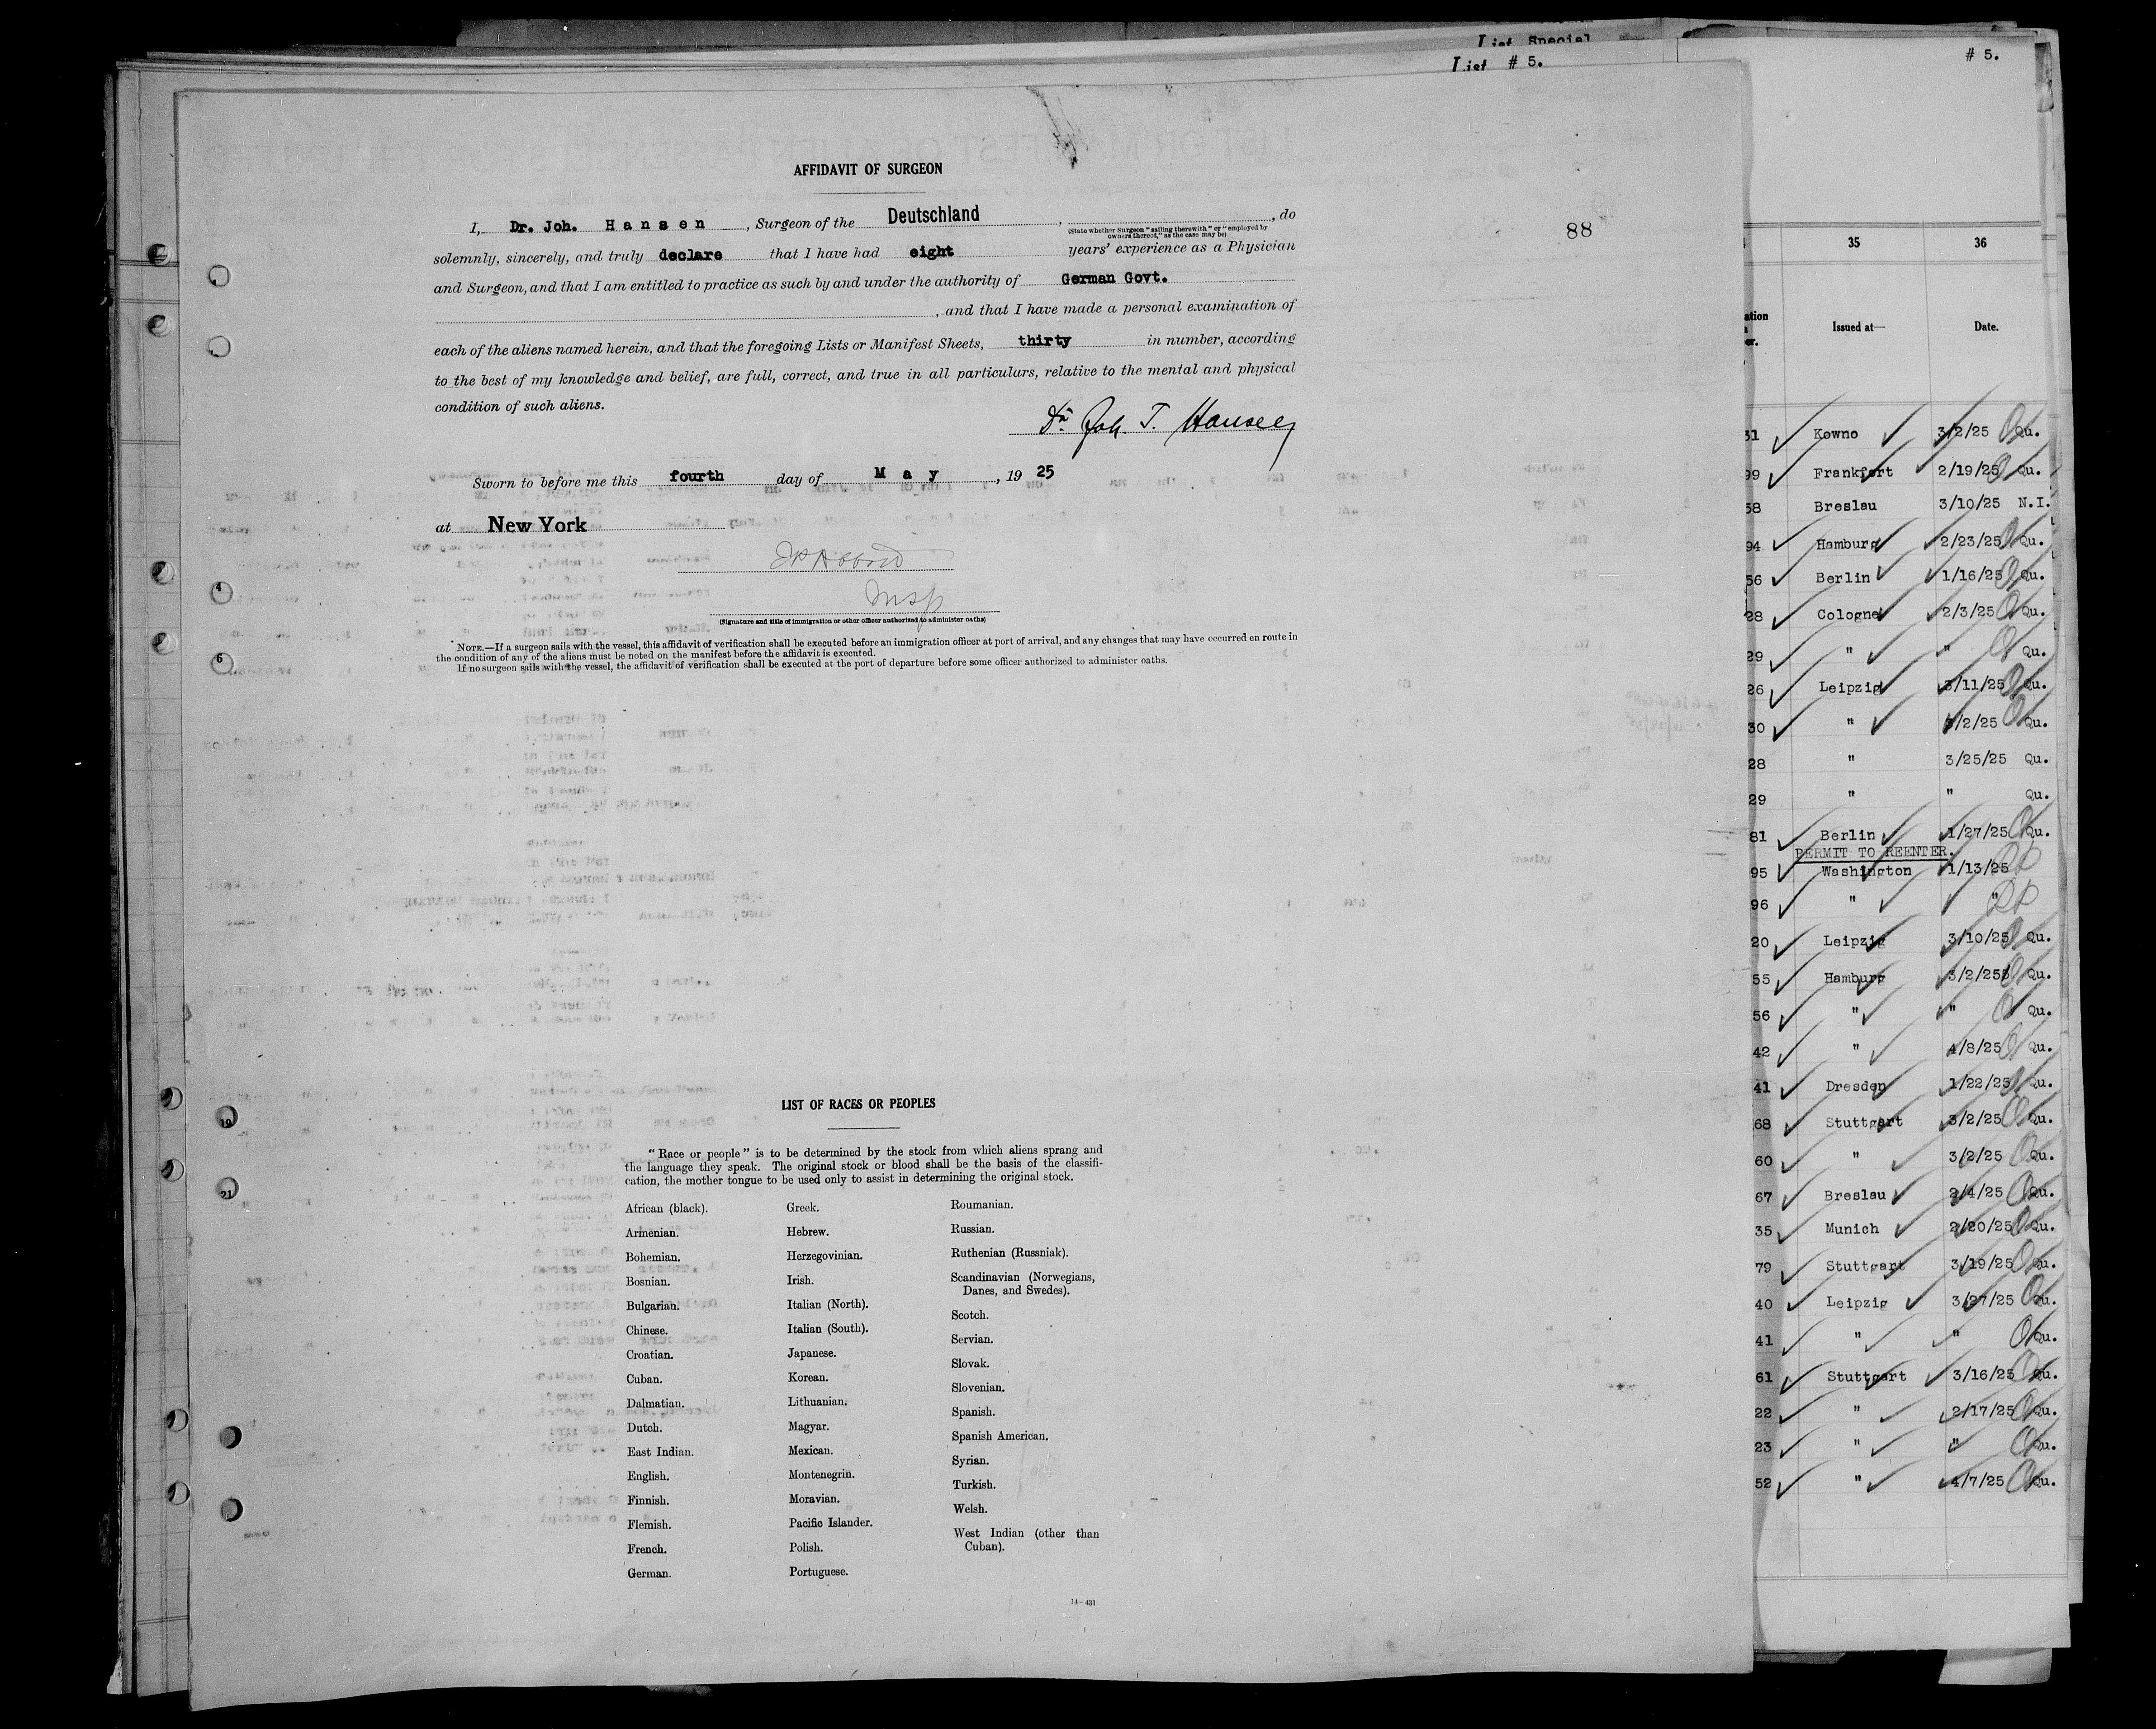 List Special
List # 5.
# 5.
AFFIDAVIT OF SURGEON
88
I, Dr. Joh. Hansen, Surgeon of the Deutschland, , do
(State whether Surgeon "sailing therewith" or "employed by
owners thereof," as the case may be)
solemnly, sincerely, and truly declare that I have had eight years' experience as a Physician
and Surgeon, and that I am entitled to practice as such by and under the authority of German Govt.
, and that I have made a personal examination of
each of the aliens named herein, and that the foregoing Lists or Manifest Sheets, thirty in number, according
to the best of my knowledge and belief, are full, correct, and true in all particulars, relative to the mental and physical
condition of such aliens.
Dr. Joh. T. Hansen
Sworn to before me this fourth day of May, 19 25
at New York
Insp
(Signature and title of immigration or other officer authorized to administer oaths)
NOTE.—If a surgeon sails with the vessel, this affidavit of verification shall be executed before an immigration officer at port of arrival, and any changes that may have occurred en route in
the condition of any of the aliens must be noted on the manifest before the affidavit is executed.
If no surgeon sails with the vessel, the affidavit of verification shall be executed at the port of departure before some officer authorized to administer oaths.
4
6
19
21
LIST OF RACES OR PEOPLES
"Race or people" is to be determined by the stock from which aliens sprang and
the language they speak. The original stock or blood shall be the basis of the classifi-
cation, the mother tongue to be used only to assist in determining the original stock.
African (black).
Armenian.
Bohemian.
Bosnian.
Bulgarian.
Chinese.
Croatian.
Cuban.
Dalmatian.
Dutch.
East Indian.
English.
Finnish.
Flemish.
French.
German.
Greek.
Hebrew.
Herzegovinian.
Irish.
Italian (North).
Italian (South).
Japanese.
Korean.
Lithuanian.
Magyar.
Mexican.
Montenegrin.
Moravian.
Pacific Islander.
Polish.
Portuguese.
Roumanian.
Russian.
Ruthenian (Russniak).
Scandinavian (Norwegians,
Danes, and Swedes).
Scotch.
Servian.
Slovak.
Slovenian.
Spanish.
Spanish American.
Syrian.
Turkish.
Welsh.
West Indian (other than
Cuban).
14—431
35 36
Issued at— Date.
31 Kowno 3/2/25 Qu.
99 Frankfort 2/19/25 Qu.
58 Breslau 3/10/25 N.I.
94 Hamburg 2/23/25 Qu.
56 Berlin 1/16/25 Qu.
28 Cologne 2/3/25 Qu.
29 " " Qu.
26 Leipzig 3/11/25 Qu.
30 " 3/2/25 Qu.
28 " 3/25/25 Qu.
29 " " Qu.
81 Berlin 1/27/25 Qu.
PERMIT TO REENTER.
95 Washington 1/13/25 RP
96 " " RP
20 Leipzig 3/10/25 Qu.
55 Hamburg 3/2/25 Qu.
56 " " Qu.
42 " 4/8/25 Qu.
41 Dresden 1/22/25 Qu.
68 Stuttgart 3/2/25 Qu.
60 " 3/2/25 Qu.
67 Breslau 2/4/25 Qu.
35 Munich 2/20/25 Qu.
79 Stuttgart 3/19/25 Qu.
40 Leipzig 3/27/25 Qu.
41 " " Qu.
61 Stuttgart 3/16/25 Qu.
22 " 2/17/25 Qu.
23 " " Qu.
52 " 4/7/25 Qu.